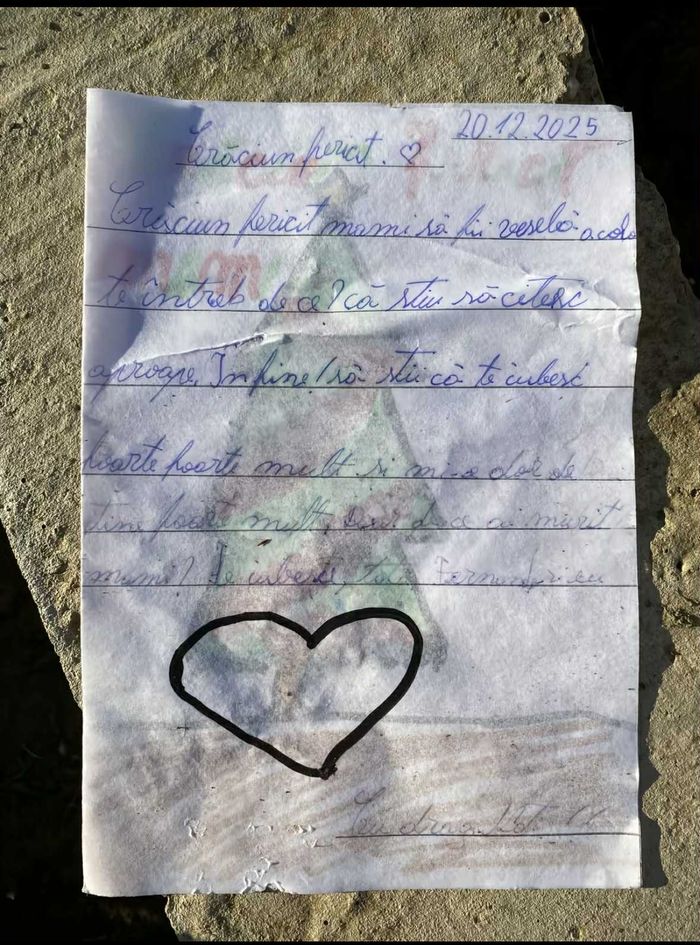 20.12.2025
Crăciun fericit. ♡
Crăciun fericit mami să fii veselă acolo
te întreb de ce? că știu să citesc
aproape. În fine! să știi că te iubesc
foarte foarte mult și mi-e dor de
tine foart mult, de ce ai murit
mami? Te iubesc, și eu
Cu drag